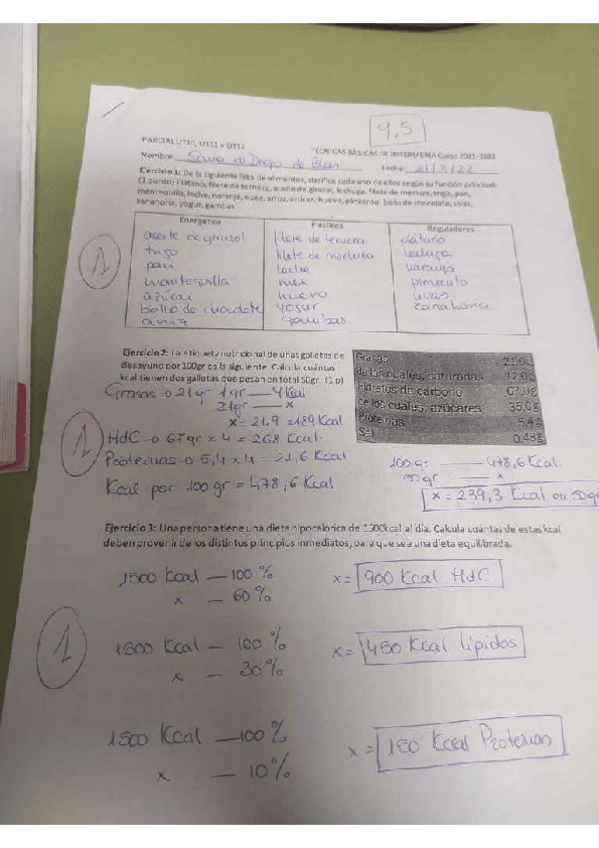 9,5
PARCIAL UT10, UT11 y UT12 TÉCNICAS BÁSICAS DE ENFERMERÍA Curso 2021-2022
Nombre: de Fecha: 21/3/22
Ejercicio 1: De la siguiente lista de alimentos, clasifica cada uno de ellos según su función principal:
(1 punto) Plátano, filete de ternera, aceite de girasol, lechuga, filete de merluza, trigo, pan,
mantequilla, leche, naranja, nuez, arroz, azúcar, huevo, pimiento, bollo de chocolate, uvas,
zanahoria, yogur, gambas.
Energética Plásticos Reguladores
aceite de girasol filete de ternera plátano
trigo filete de merluza lechuga
pan leche naranja
mantequilla nuez pimiento
azúcar huevo uvas
bollo de chocolate yogur zanahoria
arroz gambas
1
Ejercicio 2: La etiqueta nutricional de unas galletas de
desayuno por 100gr es la siguiente. Calcula cuántas
kcal tienen dos galletas que pesan en total 50gr. (1 p)
Grasas 21,0g
de las cuales, saturadas
Hidratos de carbono 67,0g
de los cuales, azúcares 35,0g
Proteínas 5,4g
Sal 0,43g
Grasas → 21gr 1gr — Kcal
21gr — x
x = 21.9 = 189 Kcal
HdC → 67gr x 4 = 268 Kcal.
Proteinas → 5,4 x 4 = 21,6 Kcal
Kcal por 100gr = 478,6 Kcal
100gr — 478,6 Kcal
50gr — x
x = 239,3 Kcal en 50g
1
Ejercicio 3: Una persona tiene una dieta hipocalórica de 1500kcal al día. Calcula cuántas de estas kcal
deben provenir de los distintos principios inmediatos, para que sea una dieta equilibrada.
1500 Kcal — 100% x = 900 Kcal HdC
x — 60%
1
1500 Kcal — 100% x = 450 Kcal Lípidos
x — 30%
1500 Kcal — 100% x = 150 Kcal Proteinas
x — 10%